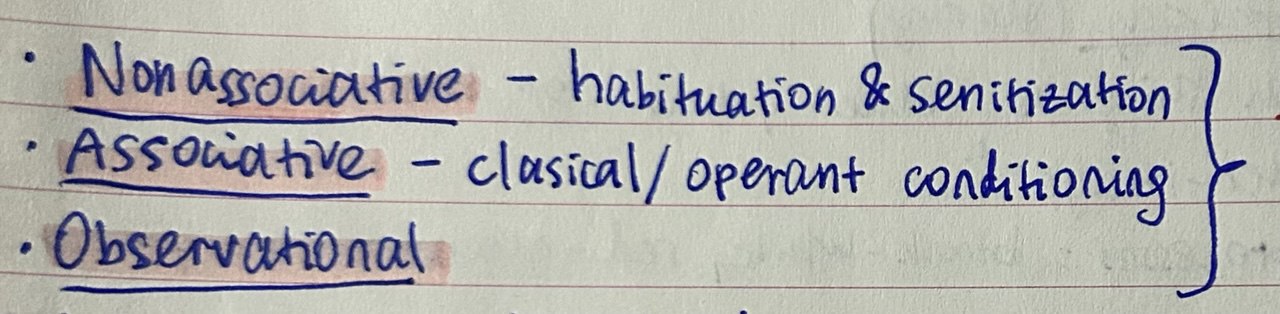 · Nonassociative - habituation & senitization
· Associative - clasical/operant conditioning
· Observational